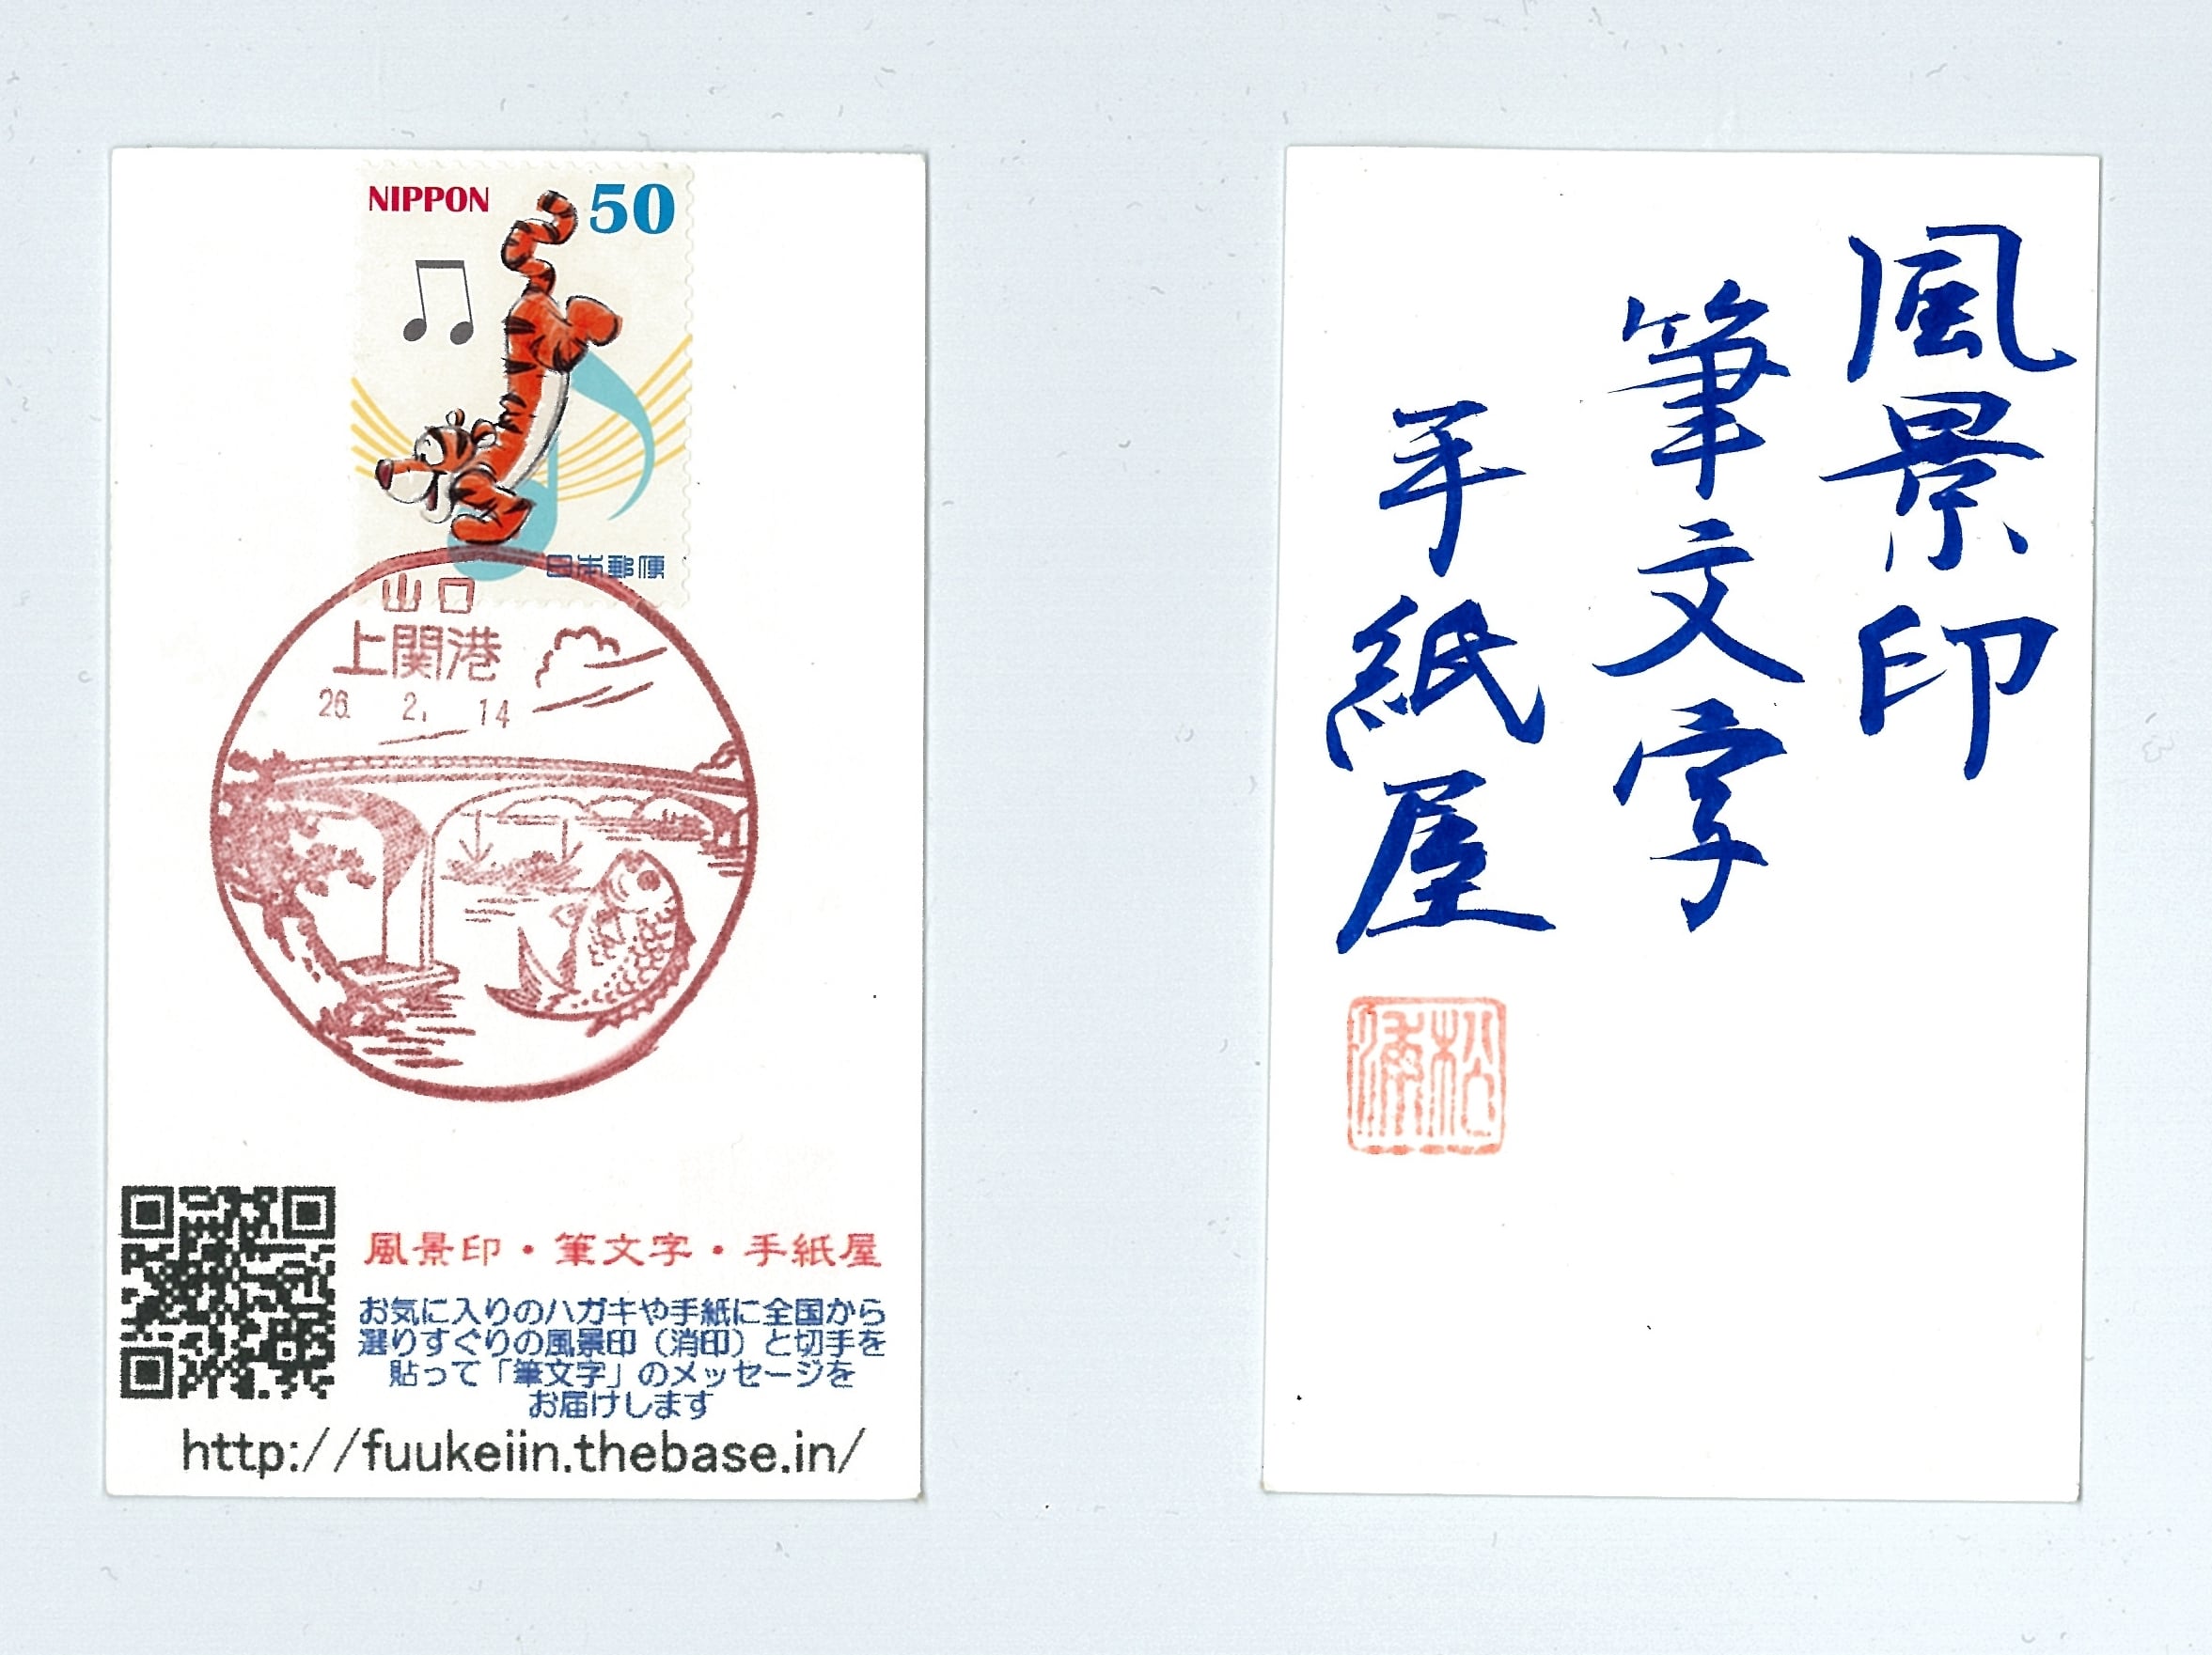 NIPPON 50
日本郵便
山口
上関港
26. 2. 14
風景印・筆文字・手紙屋
お気に入りのハガキや手紙に全国から
選りすぐりの風景印（消印）と切手を
貼って「筆文字」のメッセージを
お届けします
http://fuukeiin.thebase.in/
風景印
筆文字
手紙屋